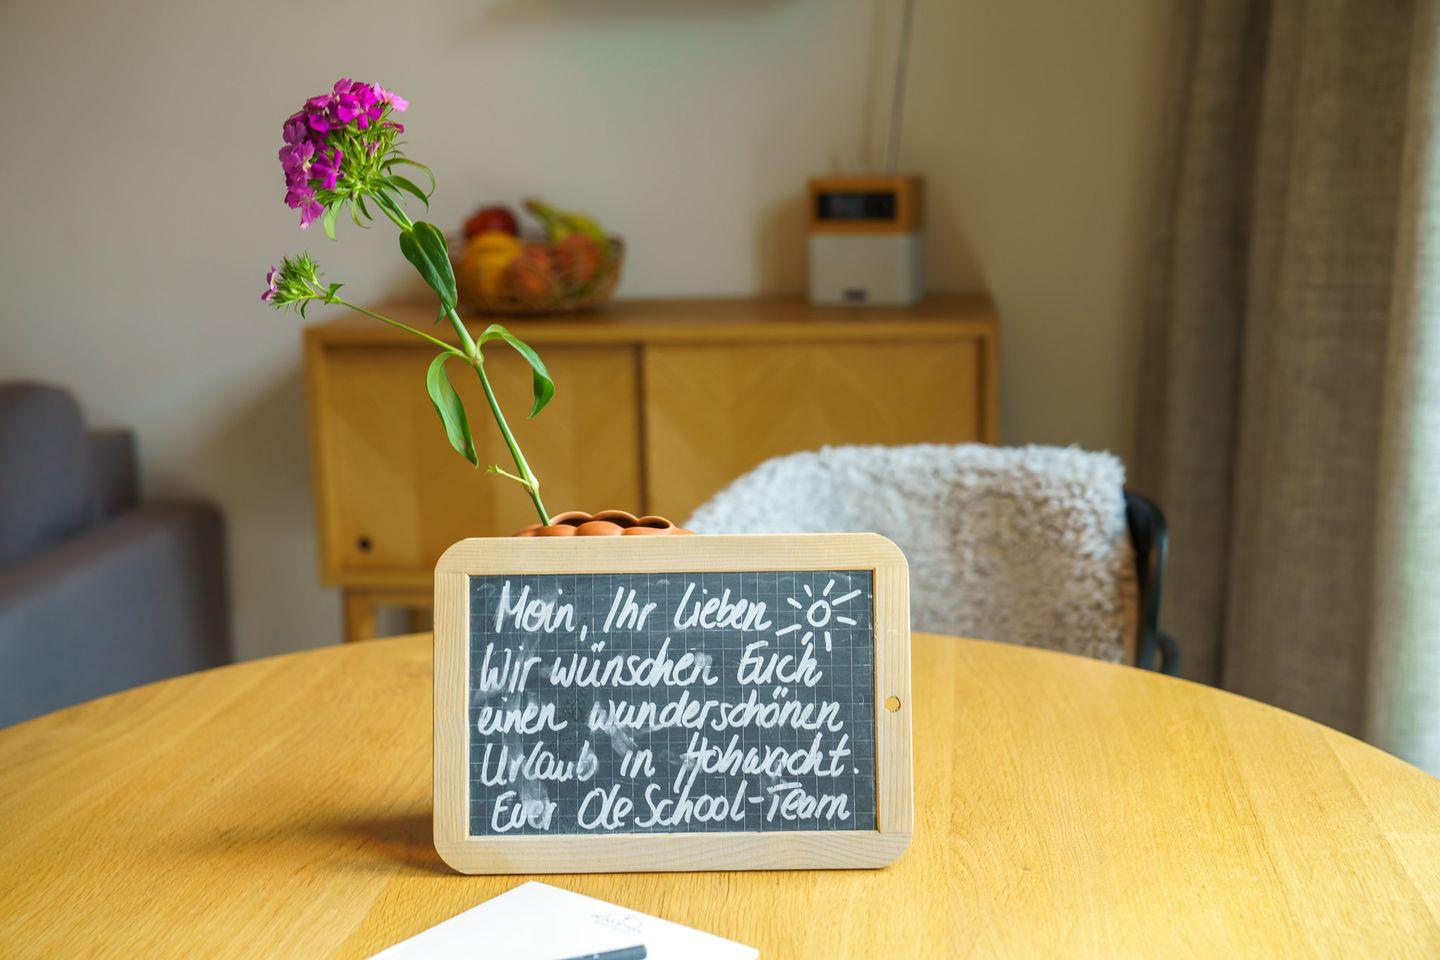 Moin, Ihr Lieben
Wir wünschen Euch
einen wunderschönen
Urlaub in Hohwacht.
Euer Ole School-Team